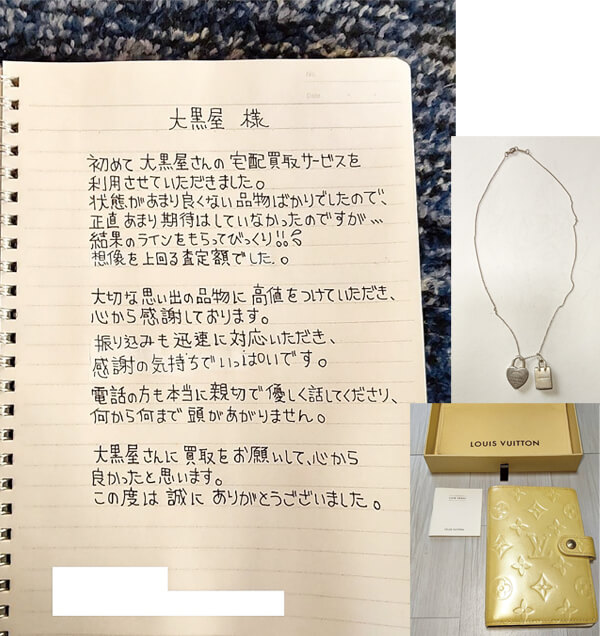 No.
Date
大黒屋 様
初めて 大黒屋さんの 宅配買取サービスを
利用させていただきました。
状態があまり良くない品物ばかりでしたので、
正直あまり期待はしていなかったのですが、、、
結果のラインをもらってびっくり!!
想像を上回る査定額でした。。
大切な思い出の品物に 高値をつけていただき、
心から感謝しております。
振り込みも迅速に対応いただき、
感謝の気持ちでいっぱいです。
電話の方も本当に親切で優しく話してくださり、
何から何まで頭があがりません。
大黒屋さんに買取をお願いして、心から
良かったと思います。
この度は 誠に ありがとうございました。
LOUIS VUITTON
LOUIS VUITTON